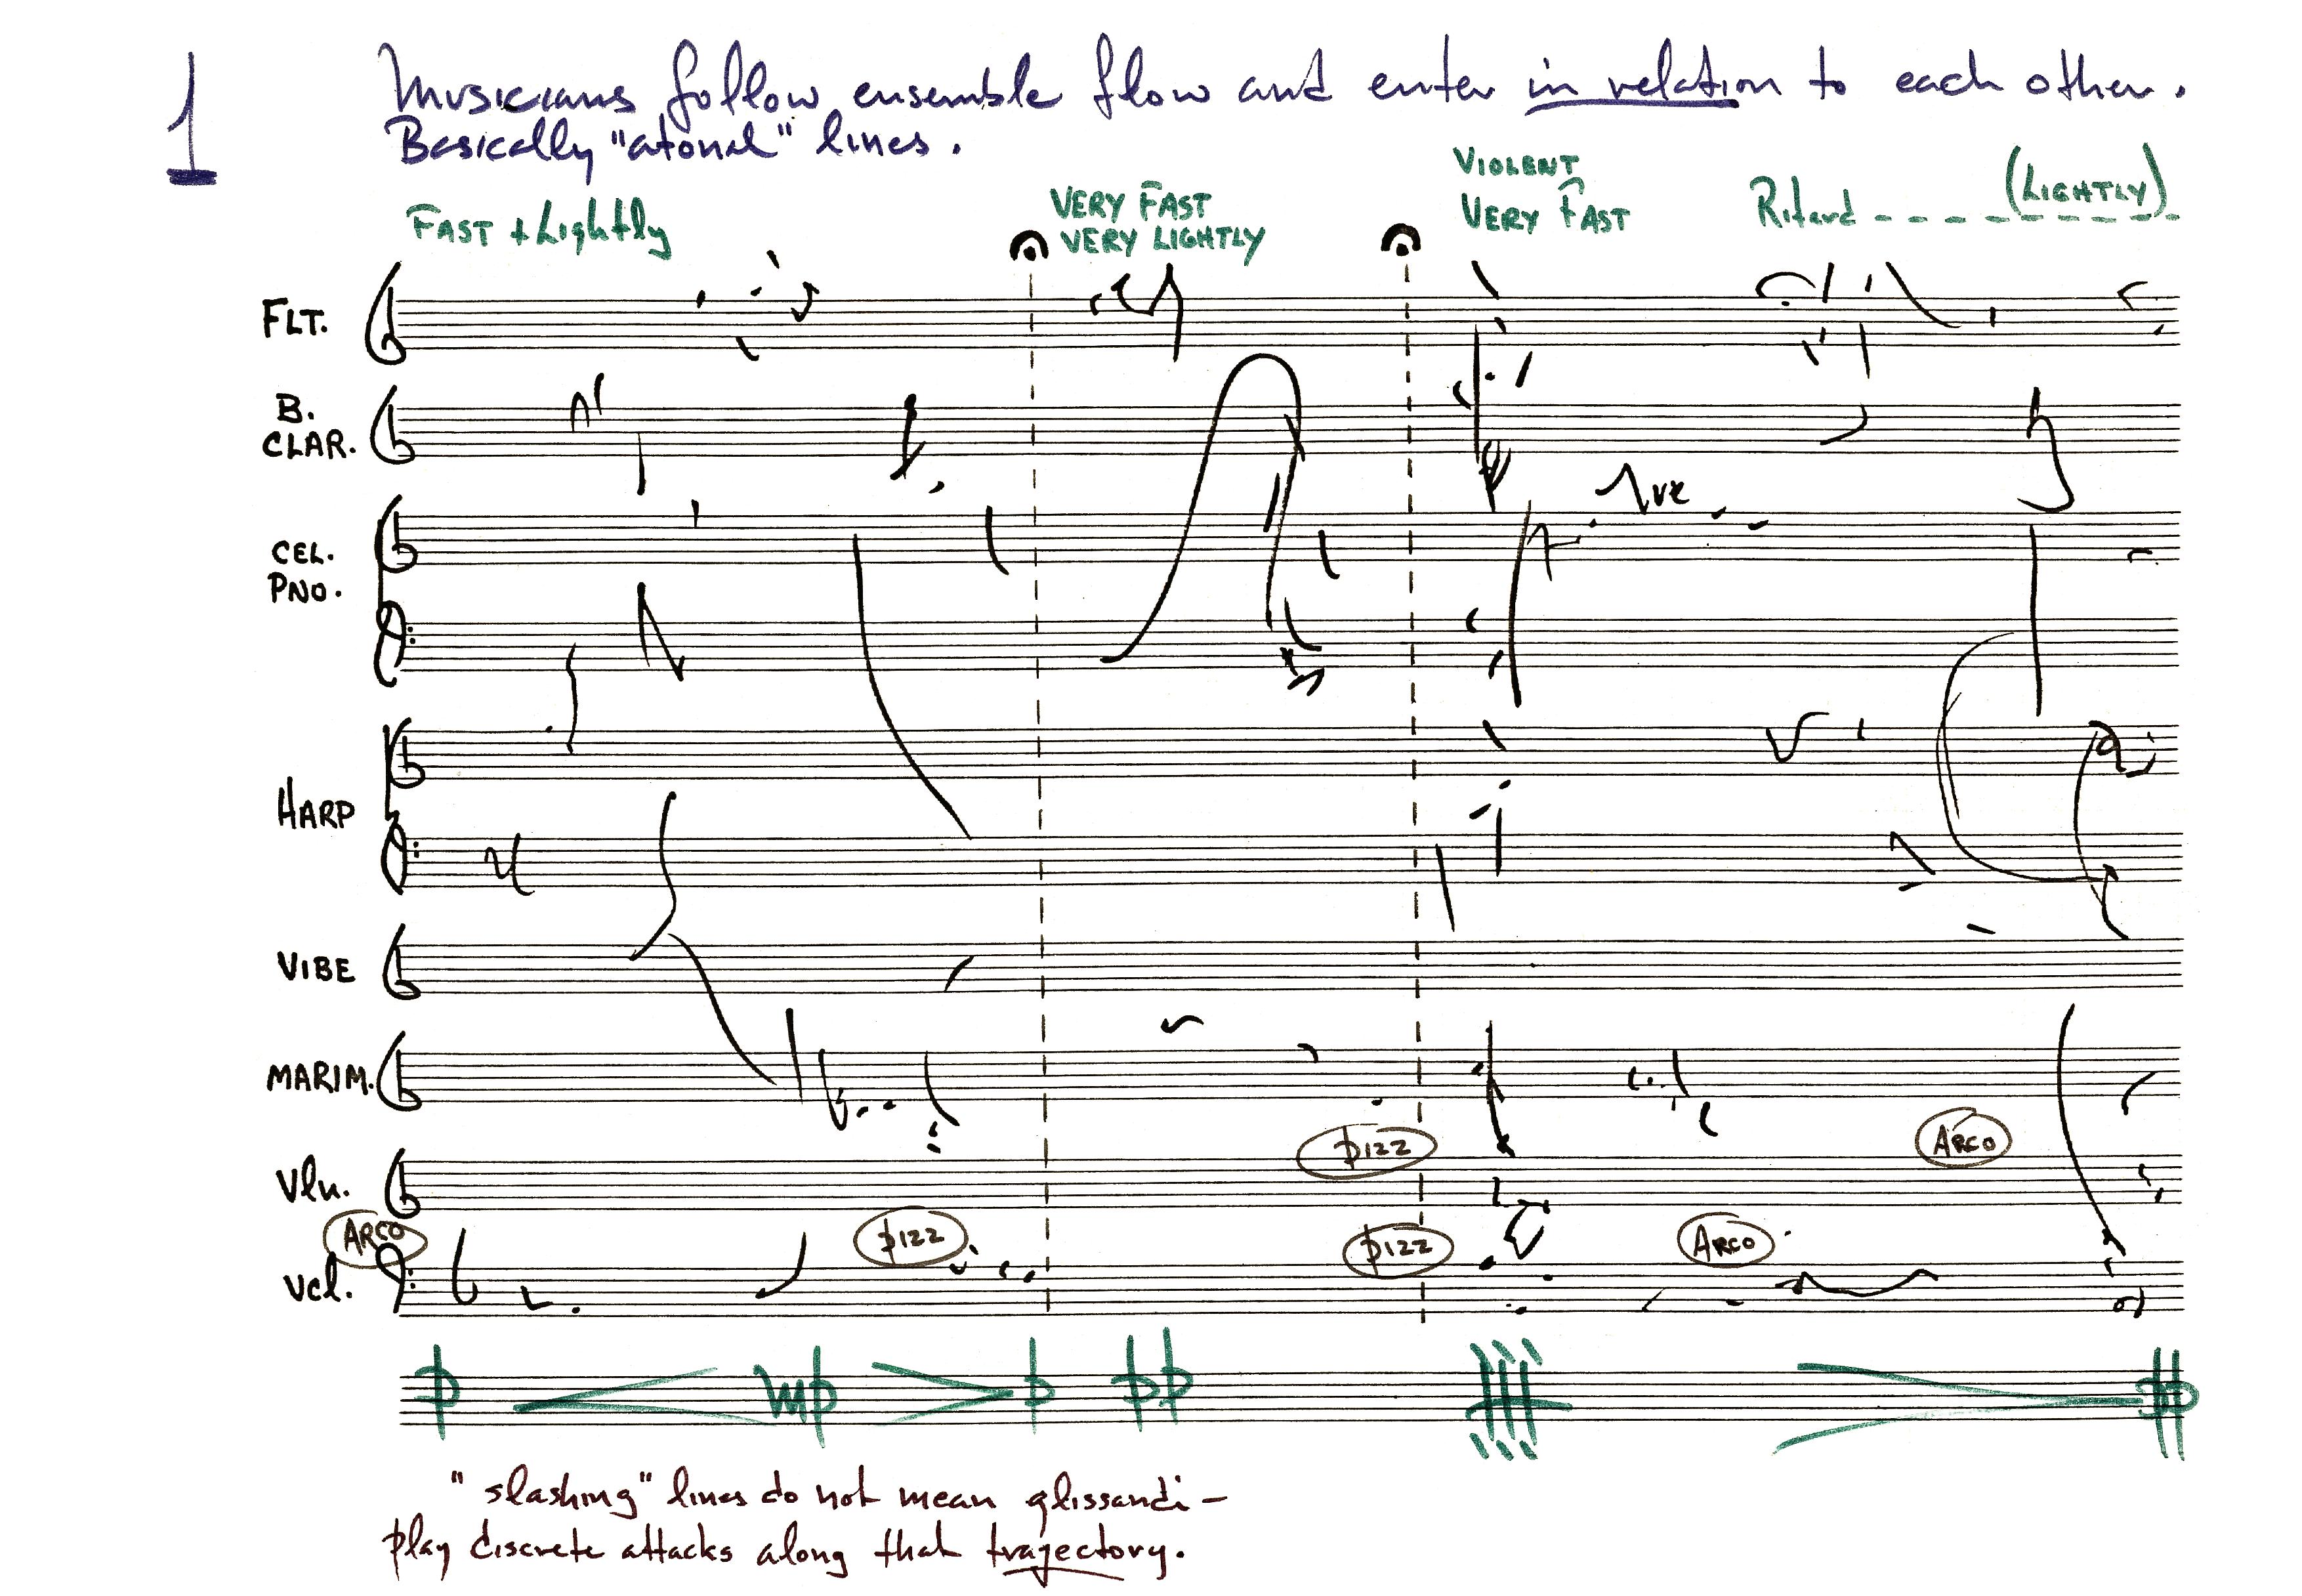 1
Musicians follow ensemble flow and enter in relation to each other.
Basically "atonal" lines.
FAST + Lightly
VERY FAST
VERY LIGHTLY
VIOLENT
VERY FAST
Ritard (LIGHTLY)
FLT.
B.
CLAR.
8ve
CEL.
PNO.
HARP
VIBE
MARIM.
PIZZ
ARCO
Vln.
ARCO
PIZZ
PIZZ
ARCO
Vcl.
p mp p pp fff pp
"slashing" lines do not mean glissandi -
play discrete attacks along that trajectory.